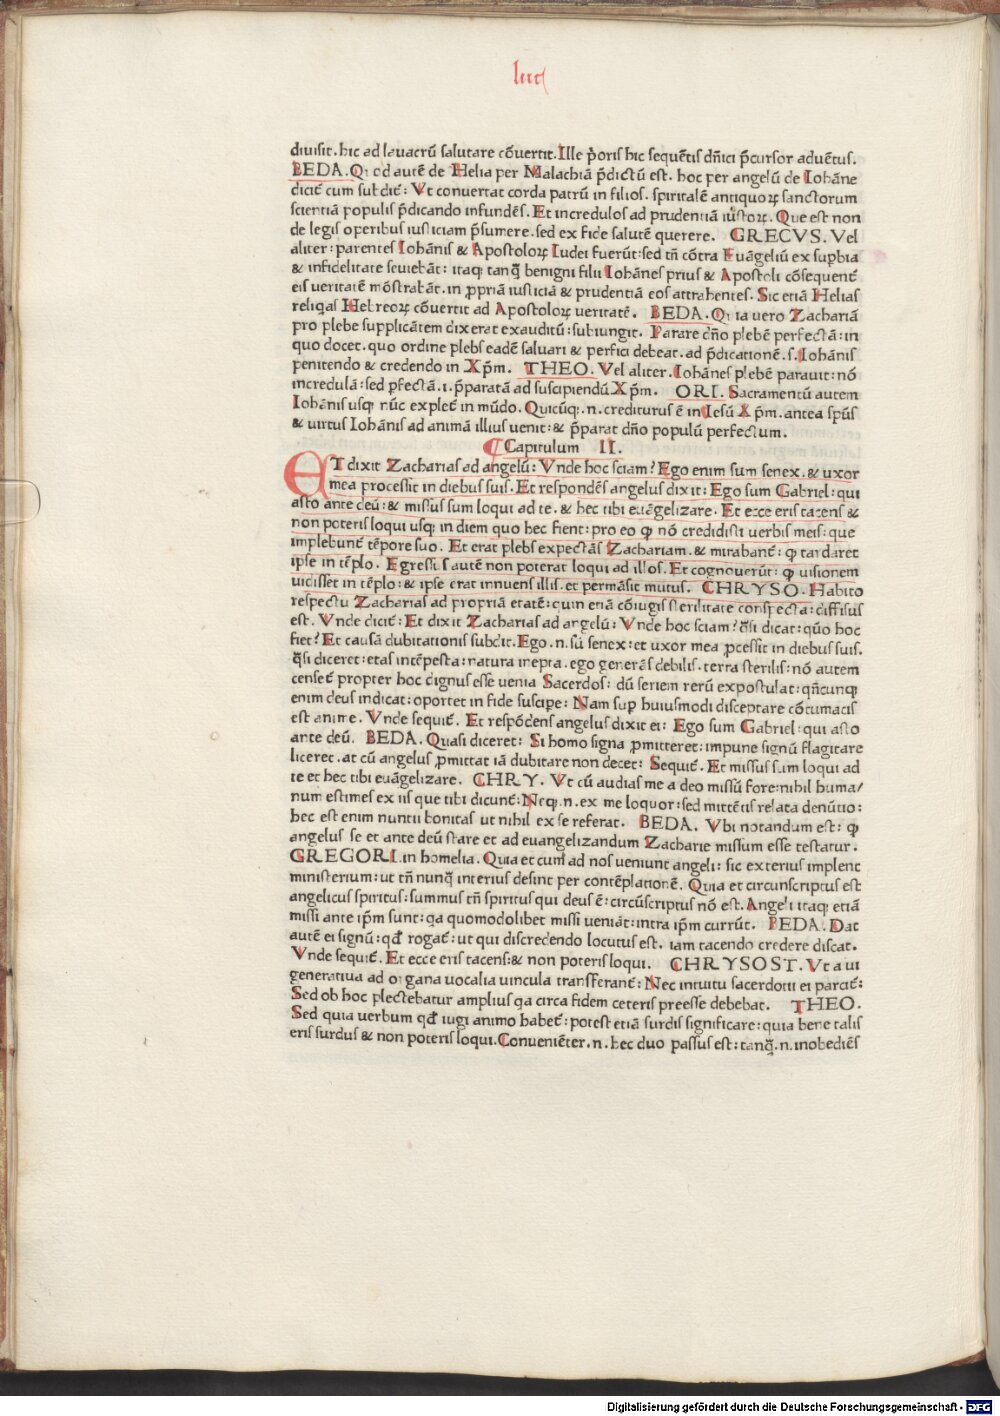 luc
diuisit. hic ad lauacrū salutare cōuertit. Ille p̄oris hic sequētis dñici p̄cursor aduētus.
BEDA. Qꝛ od autē de Helia per Malachiā p̄dictū est. hoc per angelū de Iohāne
dicit̄ cum subdit̄: Vt conuertat corda patrū in filios. spiritalē antiquoꝝ sanctorum
scientiā populis p̄dicando infundēs. Et incredulos ad prudentiā iustoꝝ. Que est non
de legis operibus iusticiam p̄sumere. sed ex fide salutē querere. GRECVS. Vel
aliter: parentes Iohānis & Apostoloꝝ Iudei fuerūt: sed tñ cōtra Euāgeliū ex supbia
& infidelitate seuiebāt: itaqꝫ tanq̄ benigni filii Iohānes prius & Apostoli cōsequent̄
eis veritatē mōstrabāt. in ꝓpriā iusticiā & prudentiā eos attrahentes. Sic etiā Helias
reliqas Hebreoꝝ cōuertit ad Apostoloꝝ veritatē. BEDA. Quia vero Zachariā
pro plebe supplicātem dixerat exauditū: subiungit. Parare dño plebē perfectā: in
quo docet. quo ordine plebs eadē saluari & perfici debeat. ad p̄dicationē .s. Iohānis
penitendo & credendo in Xp̄m. THEO. Vel aliter. Iohānes plebē parauit: nō
incredulā: sed ꝑfectā .i. p̄paratā ad suscipiendū Xp̄m. ORI. Sacramentū autem
Iohānis usqꝫ nūc explet̄ in mūdo. Quicūqꝫ .n. crediturus ē in Iesū Xp̄m. antea spūs
& uirtus Iohānis ad animā illius uenit: & p̄parat dño populū perfectum.
Capitulum II.
ET dixit Zacharias ad angelū: Vnde hoc sciam? Ego enim sum senex. & uxor
mea processit in diebus suis. Et respondēs angelus dixit: Ego sum Gabriel: qui
asto ante deū: & missus sum loqui ad te. & hec tibi euāgelizare. Et ecce eris tacens &
non poteris loqui usqꝫ in diem quo hec fient: pro eo ꝙ nō credidisti verbis meis: que
implebunt̄ tēpore suo. Et erat plebs expectās Zachariam. & mirabant̄: ꝙ tardaret
ipse in tēplo. Egressus autē non poterat loqui ad illos. Et cognouerūt: ꝙ uisionem
uidisset in tēplo: & ipse erat innuens illis. et permāsit mutus. CHRYSO. Habito
respectu Zacharias ad propriā etatē: quin etiā cōiugis sterilitate conspecta: diffisus
est. Vnde dicit̄: Et dixit Zacharias ad angelū: Vnde hoc sciam? q̄si dicat: quō hoc
fiet? Et causā dubitationis subdit. Ego .n. sū senex: et uxor mea ꝓcessit in diebus suis.
q̄si diceret: etas intēpesta: natura inepta. ego generās debilis. terra sterilis: nō autem
censet̄ propter hoc dignus esse venia Sacerdos: dū seriem rerū expostulat: qñcunqꝫ
enim deus indicat: oportet in fide suscipe: Nam sup̱ huiusmodi disceptare cōtumacis
est anime. Vnde sequit̄. Et respōdens angelus dixit ei: Ego sum Gabriel: qui asto
ante deū. BEDA. Quasi diceret: Si homo signa ꝓmitteret: impune signū flagitare
liceret. at cū angelus ꝓmittat iā dubitare non decet: Sequit̄. Et missus sum loqui ad
te et hec tibi euāgelizare. CHRY. Vt cū audias me a deo missū fore: nihil huma/
num estimes ex iis que tibi dicunt̄: Neqꝫ .n. ex me loquor: sed mittētis relata denūtio:
hec est enim nuntii bonitas ut nihil ex se referat. BEDA. Vbi notandum est: ꝙ
angelus se et ante deū stare et ad euangelizandum Zacharie missum esse testatur.
GREGORI. in homelia. Quia et cum ad nos ueniunt angeli: sic exterius implent
ministerium: ut tñ nunq̄ interius desint per contēplationē. Quia et circunscriptus est
angelicus spiritus: summus tñ spiritus qui deus ē: circūscriptus nō est. Angeli itaqꝫ etiā
missi ante ip̄m sunt: qa quomodolibet missi ueniāt: intra ip̄m currūt. BEDA. Dat
autē ei signū: qđ rogat̄: ut qui discredendo locutus est. iam tacendo credere discat.
Vnde sequit̄. Et ecce eris tacens: & non poteris loqui. CHRYSOST. Vt a ui
generatiua ad organa uocalia uincula transferant̄: Nec intuitu sacerdotii ei parcit̄:
Sed ob hoc plectebatur amplius qa circa fidem ceteris preesse debebat. THEO.
Sed quia uerbum qđ iugi animo habet̄: potest etiā surdis significare: quia bene talis
eris surdus & non poteris loqui. Conueniēter .n. hec duo passus est: tanq̄ .n. inobediēs
Digitalisierung gefördert durch die Deutsche Forschungsgemeinschaft - DFG